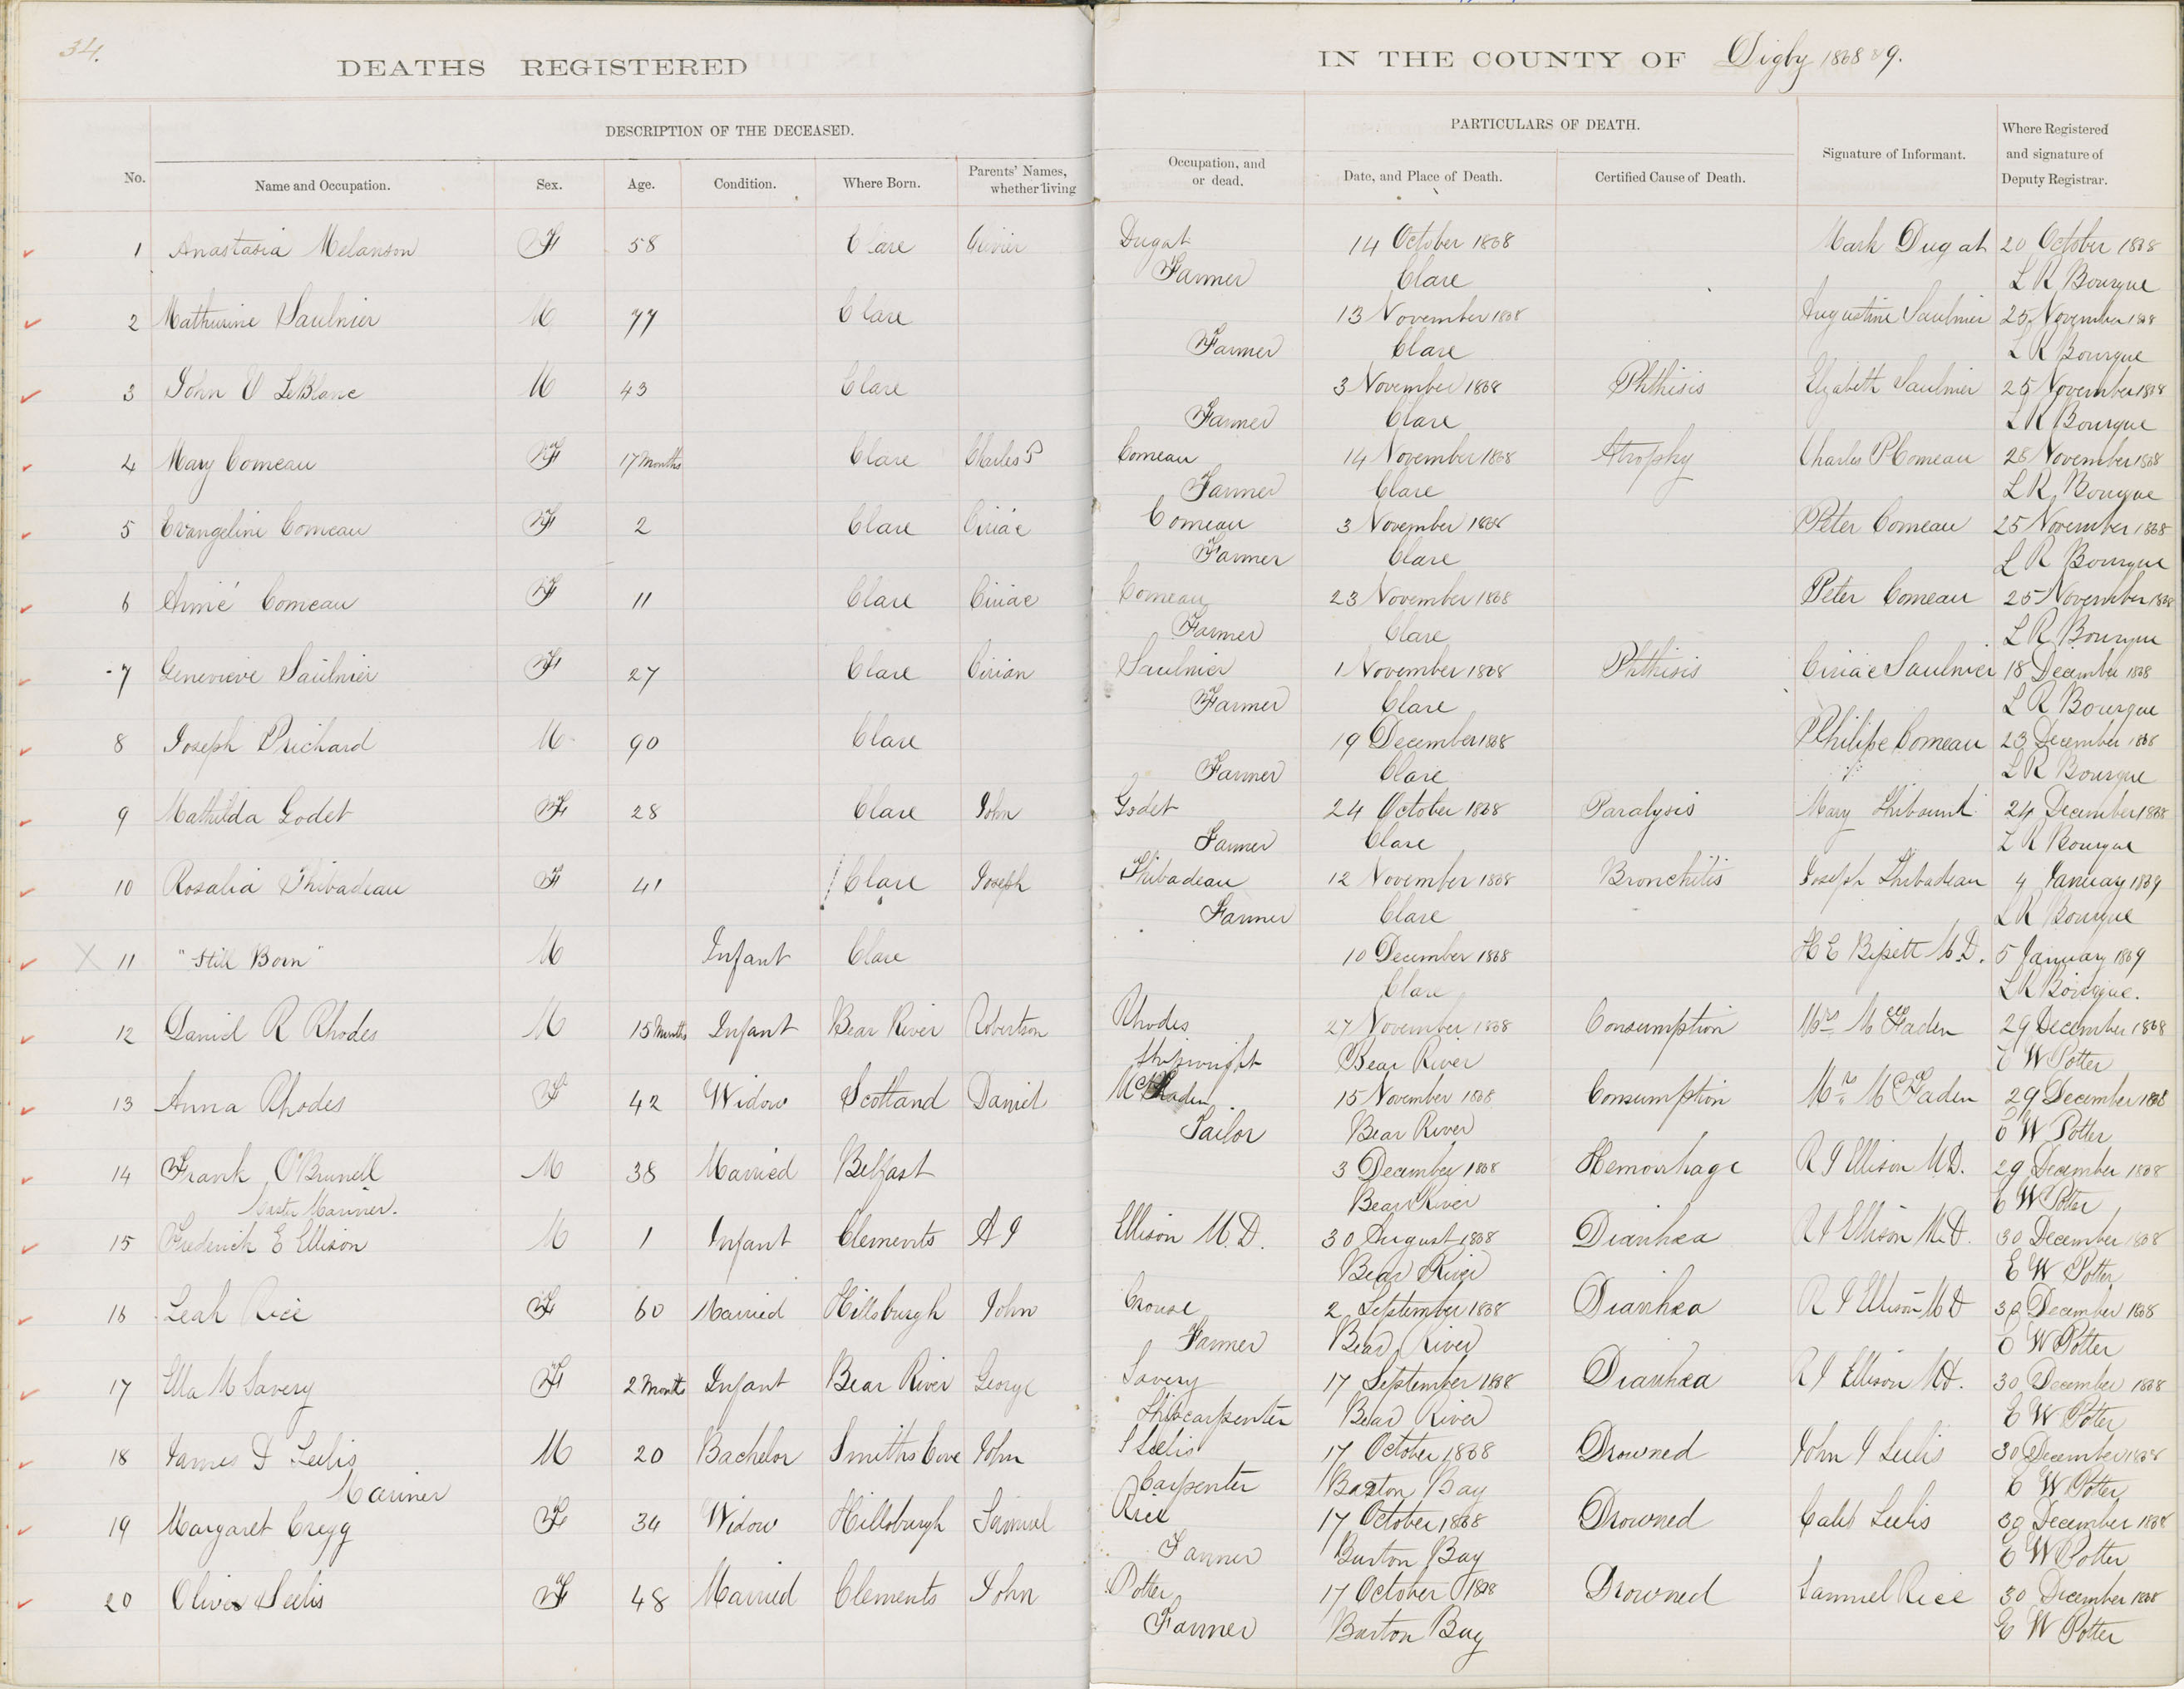 34.
DEATHS REGISTERED IN THE COUNTY OF Digby 1868 & 9.
DESCRIPTION OF THE DECEASED. PARTICULARS OF DEATH.
No. Name and Occupation. Sex. Age. Condition. Where Born. Parents' Names, whether living Occupation, and or dead. Date, and Place of Death. Certified Cause of Death. Signature of Informant. Where Registered and signature of Deputy Registrar.
1 Anastasia Melanson F 58 Clare Dugat 14 October 1868 Mark Dugat 20 October 1868
Farmer Clare L R Bourque
2 Mathurine Saulnier M 77 Clare 13 November 1868 Augustine Saulnier 25 November 1868
Farmer Clare L R Bourque
3 John LeBlanc M 43 Clare 3 November 1868 Phthisis Elizabeth Saulnier 25 November 1868
Farmer Clare L R Bourque
4 Mary Comeau F 17 Months Clare Charles P Comeau 14 November 1868 Atrophy Charles P Comeau 28 November 1868
Farmer Clare L R Bourque
5 Evangeline Comeau F 2 Clare Ciriac Comeau 3 November 1868 Peter Comeau 25 November 1868
Farmer Clare L R Bourque
6 Aimé Comeau F 11 Clare Ciriac Comeau 23 November 1868 Peter Comeau 25 November 1868
Farmer Clare L R Bourque
7 Genevieve Saulnier F 27 Clare Saulnier 1 November 1868 Phthisis Ciriac Saulnier 18 December 1868
Farmer Clare L R Bourque
8 Joseph Prichard M 90 Clare 19 December 1868 Philipe Comeau 23 December 1868
Farmer Clare L R Bourque
9 Mathilda Godet F 28 Clare John Godet 24 October 1868 Paralysis Mary 24 December 1868
Farmer Clare L R Bourque
10 Rosalia Thibadeau F 41 Clare Joseph Thibadeau 12 November 1868 Bronchitis Joseph Thibadeau 4 January 1869
Farmer Clare L R Bourque
X 11 "Still Born" M Infant Clare 10 December 1868 H E Bipett M.D. 5 January 1869
Clare L R Bourque.
12 Daniel R Rhodes M 15 Months Infant Bear River Robertson Rhodes 27 November 1868 Consumption Mrs McFaden 29 December 1868
Shipwright Bear River E W Potter
13 Anna Rhodes F 42 Widow Scotland Daniel McFaden 15 November 1868 Consumption Mrs McFaden 29 December 1868
Tailor Bear River E W Potter
14 Frank O'Brunell M 38 Married Belfast 3 December 1868 Hemorrhage R J Ellison M.D. 29 December 1868
Master Mariner. Bear River E W Potter
15 Frederick E Ellison M 1 Infant Clements Ellison M.D. 30 August 1868 Diarrhea R J Ellison M.D. 30 December 1868
Bear River E W Potter
16 Leah Rice F 60 Married Hillsburgh John Crouse 2 September 1868 Diarrhea R J Ellison M D 30 December 1868
Farmer Bear River E W Potter
17 Ella M Savery F 2 Months Infant Bear River George Savery 17 September 1868 Diarrhea R J Ellison M.D. 30 December 1868
Shipcarpenter Bear River E W Potter
18 James D Sulis M 20 Bachelor Smiths Cove John Sulis 17 October 1868 Drowned John J Sulis 30 December 1868
Mariner Carpenter Barton Bay E W Potter
19 Margaret Cregg F 34 Widow Hillsburgh Samuel Rice 17 October 1868 Drowned Caleb Sulis 30 December 1868
Farmer Barton Bay E W Potter
20 Olive Sulis F 48 Married Clements John Potter 17 October 1868 Drowned Samuel Rice 30 December 1868
Farmer Barton Bay E W Potter